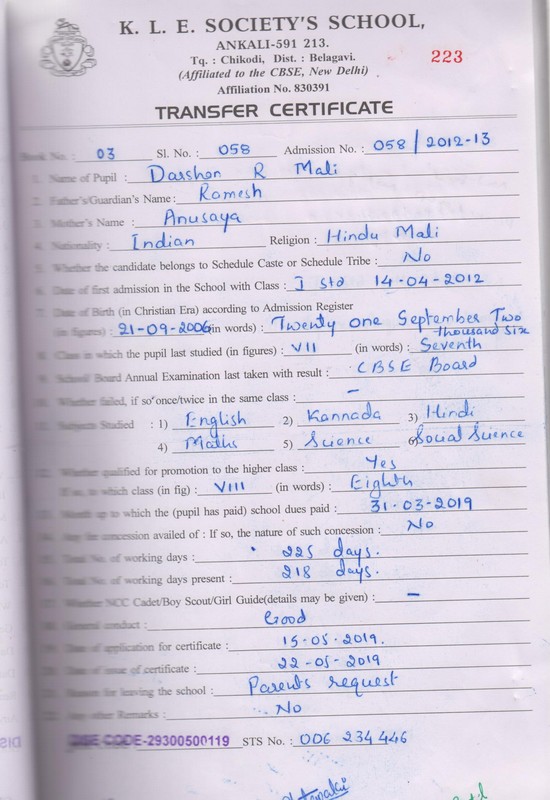 K. L. E. SOCIETY'S SCHOOL,
ANKALI-591 213.
Tq. : Chikodi, Dist. : Belagavi.
(Affiliated to the CBSE, New Delhi)
223
Affiliation No. 830391
TRANSFER CERTIFICATE
Book No. : 03 Sl. No. : 058 Admission No. : 058 / 2012-13
1. Name of Pupil : Darshan R Mali
2. Father's/Guardian's Name : Ramesh
3. Mother's Name : Anusaya
4. Nationality : Indian Religion : Hindu Mali
5. Whether the candidate belongs to Schedule Caste or Schedule Tribe : No
6. Date of first admission in the School with Class : I std 14-04-2012
7. Date of Birth (in Christian Era) according to Admission Register
(in figures) : 21-09-2006 (in words) : Twenty one September Two thousand six
8. Class in which the pupil last studied (in figures) : VII (in words) : Seventh
9. School/Board Annual Examination last taken with result : CBSE Board
10. Whether failed, if so once/twice in the same class : –
11. Subjects Studied : 1) English 2) Kannada 3) Hindi
4) Maths 5) Science 6) Social Science
12. Whether qualified for promotion to the higher class : Yes
If so, to which class (in fig) : VIII (in words) : Eighth
13. Month up to which the (pupil has paid) school dues paid : 31-03-2019
14. Any fee concession availed of : If so, the nature of such concession : No
15. Total No. of working days : 225 days.
16. Total No. of working days present : 218 days.
17. Whether NCC Cadet/Boy Scout/Girl Guide(details may be given) : –
18. General conduct : Good
19. Date of application for certificate : 15-05-2019.
20. Date of issue of certificate : 22-05-2019
21. Reason for leaving the school : Parents request
22. Any other Remarks : No
DISE CODE-29300500119 STS No. : 006 234446